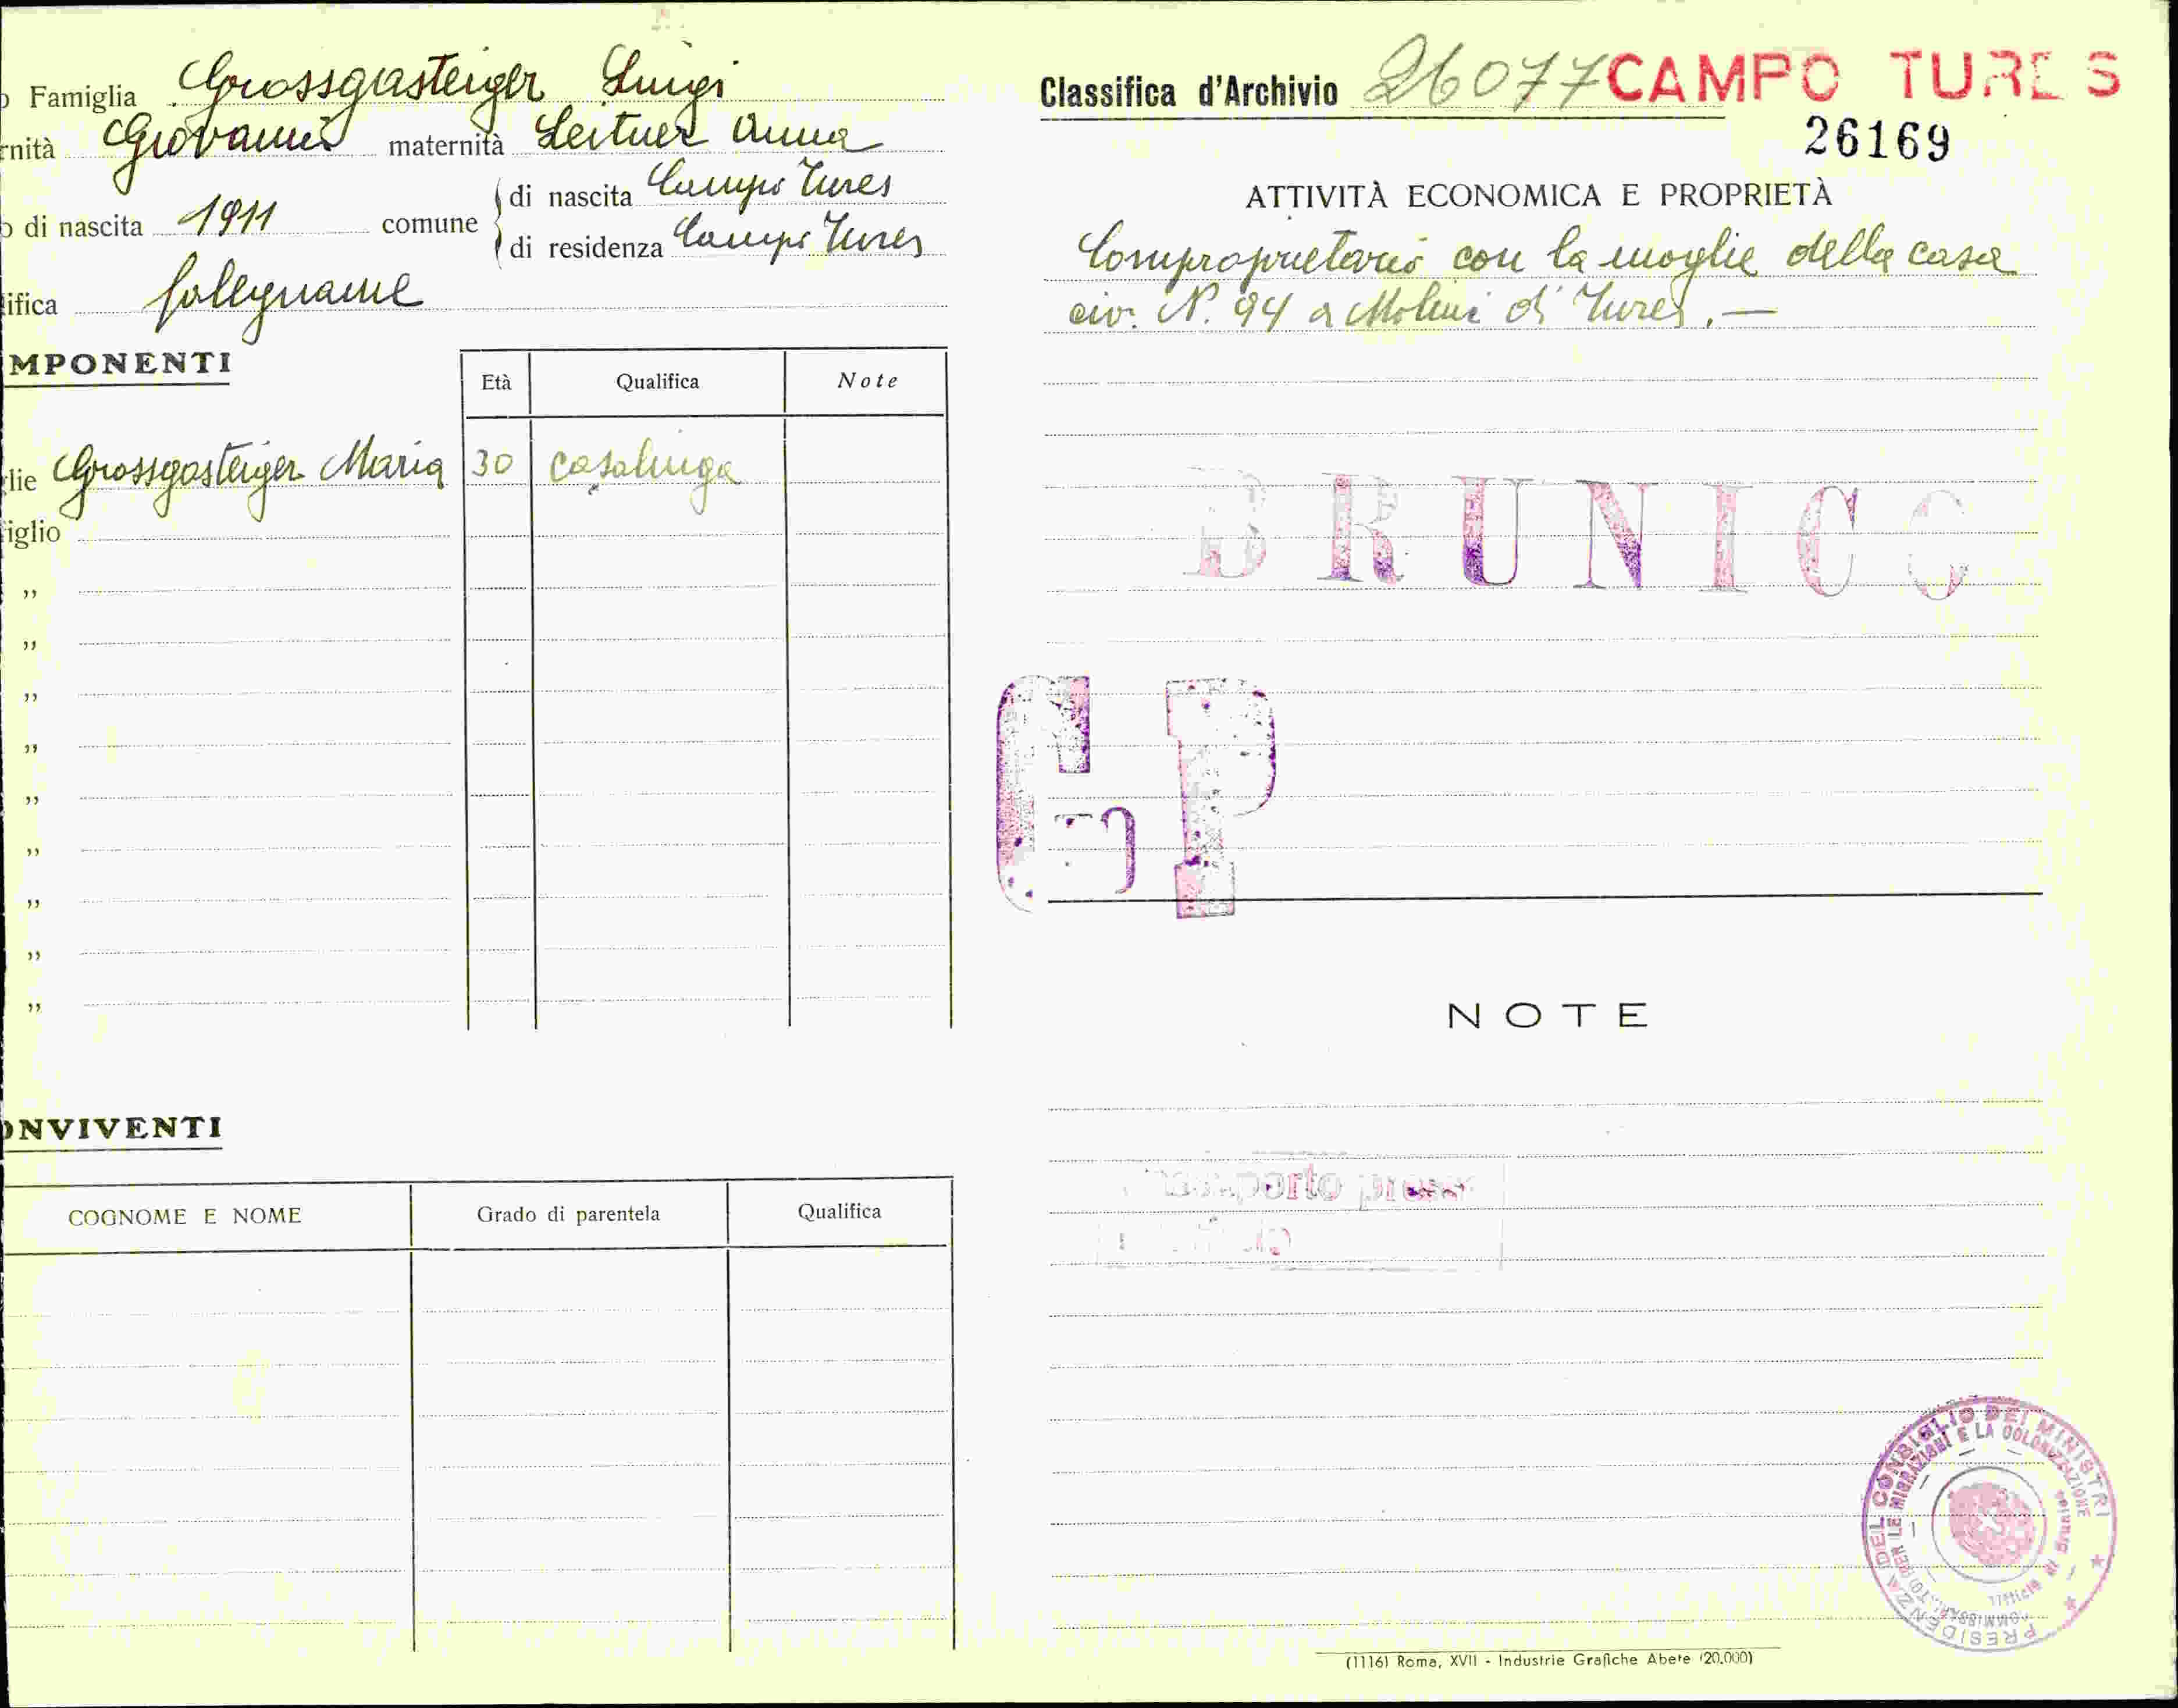 Famiglia Grossgasteiger Luigi
rnità Giovanni maternità Leitner Anna
di nascita 1911 comune di nascita Campo Tures
di residenza Campo Tures
ifica falegname
MPONENTI
Età Qualifica Note
lie Grossgasteiger Maria 30 casalinga
iglio
”
”
”
”
”
”
”
”
”
ONVIVENTI
COGNOME E NOME Grado di parentela Qualifica
Classifica d'Archivio 26077 CAMPO TURES
26169
ATTIVITÀ ECONOMICA E PROPRIETÀ
Comproprietario con la moglie della casa
civ. N. 94 a Molini di Tures. —
BRUNICO
GP
NOTE
PRESIDENZA DEL CONSIGLIO DEI MINISTRI
COMMISSARIATO PER LE MIGRAZIONI E LA COLONIZZAZIONE
Ufficio di Brunico
(1116) Roma, XVII - Industrie Grafiche Abete (20.000)